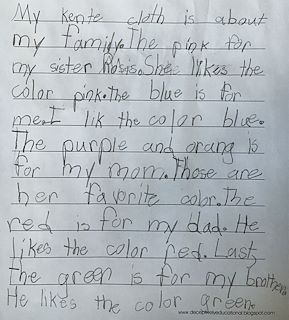 My kente cloth is about
my family. The pink for
my sister Rosis. She likes the
color pink. the blue is for
me. I lik the color blue.
The purple and orang is
for my mom. Those are
her favorite colbr. The
red is for my dad. He
likes the color red. Last,
the green is for my brother.
He likes the color green.
www.deceptivelyeducational.blogspot.com